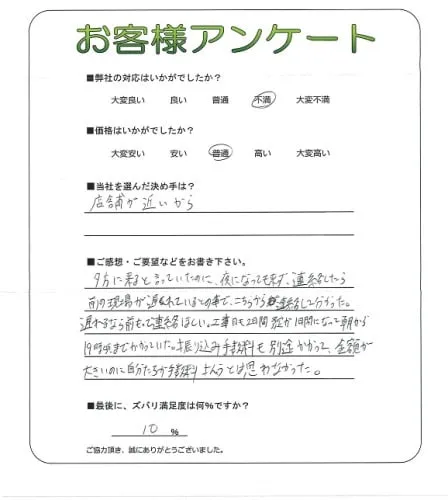 お客様アンケート
■弊社の対応はいかがでしたか?
大変良い 良い 普通 不満 大変不満
■価格はいかがでしたか?
大変安い 安い 普通 高い 大変高い
■当社を選んだ決め手は?
店舗が近いから
■ご感想・ご要望などをお書き下さい。
夕方に来ると言っていたのに、夜になっても来ず、連絡したら
前の現場が遅れているとの事で、こちらから連絡して分かった。
遅れるなら前もって連絡ほしい。工事日も2日間が1日間になって朝から
19時頃までかかっていた。振り込み手数料も別途かかって、金額が
大きいのに自分たちが手数料払うとは思わなかった。
■最後に、ズバリ満足度は何%ですか?
10 %
ご協力頂き、誠にありがとうございました。